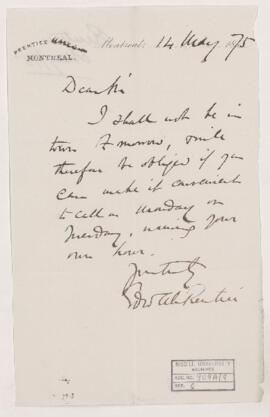 PRENTICE
MONTREAL.
Montreal, 14 May 1875
Dear Sir
I shall not be in
town tomorrow, & will
therefore be obliged if you
can make it convenient
to call on Monday or
Tuesday, naming your
own hour.
Yours truly
McGILL UNIVERSITY
ARCHIVES
ACC. NO. 909A/9
REF. 6